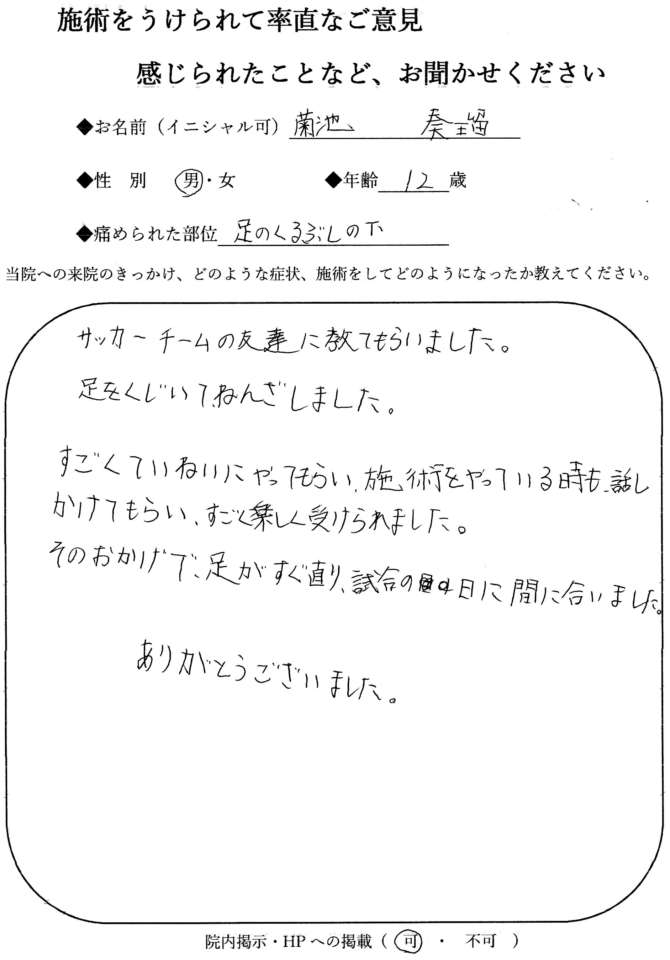 施術をうけられて率直なご意見
感じられたことなど、お聞かせください
◆お名前（イニシャル可） 菊池 奏
◆性 別 男・女 ◆年齢 12 歳
◆痛められた部位 足のくるぶしの下
当院への来院のきっかけ、どのような症状、施術をしてどのようになったか教えてください。
サッカーチームの友達に教てもらいました。
足をくじいて、ねんざしました。
すごくていねいにやってもらい、施術をやっている時も、話し
かけてもらい、すごく楽しく受けられました。
そのおかげで、足がすぐ直り、試合の日に間に合いました。
ありがとうございました。
院内掲示・HPへの掲載（ 可 ・ 不可 ）